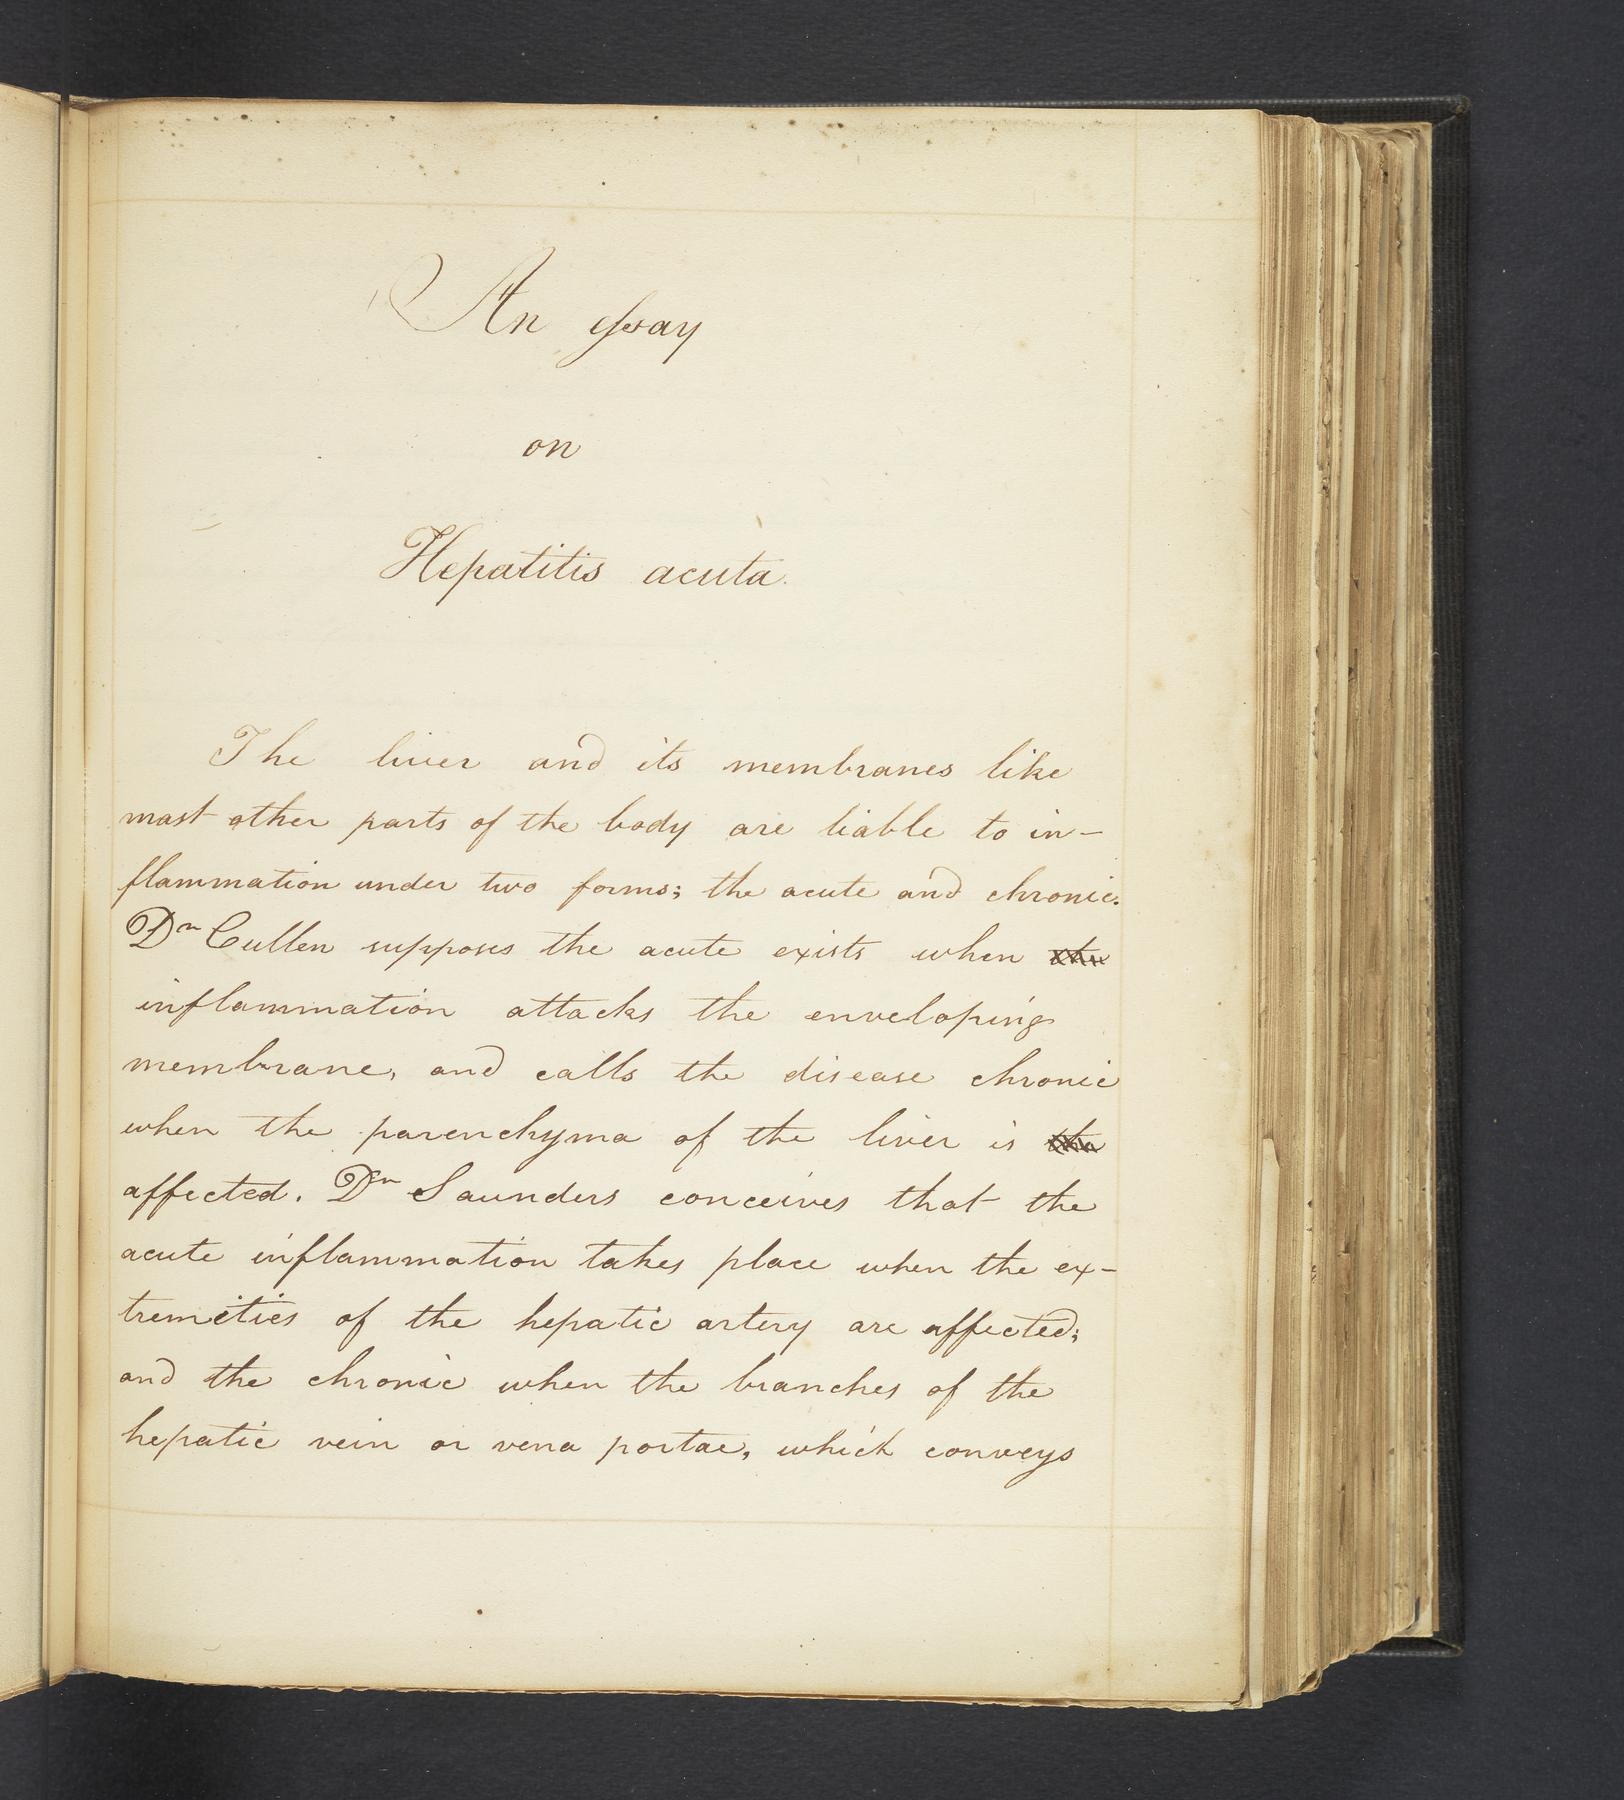 An essay
on
Hepatitis acuta.
The liver and its membranes like
most other parts of the body are liable to in-
flammation under two forms; the acute and chronic.
Dr Cullen supposes the acute exists when the
inflammation attacks the enveloping
membrane, and calls the disease chronic
when the parenchyma of the liver is the
affected. Dr Saunders conceives that the
acute inflammation takes place when the ex-
tremities of the hepatic artery are affected;
and the chronic when the branches of the
hepatic vein or vena portae, which conveys